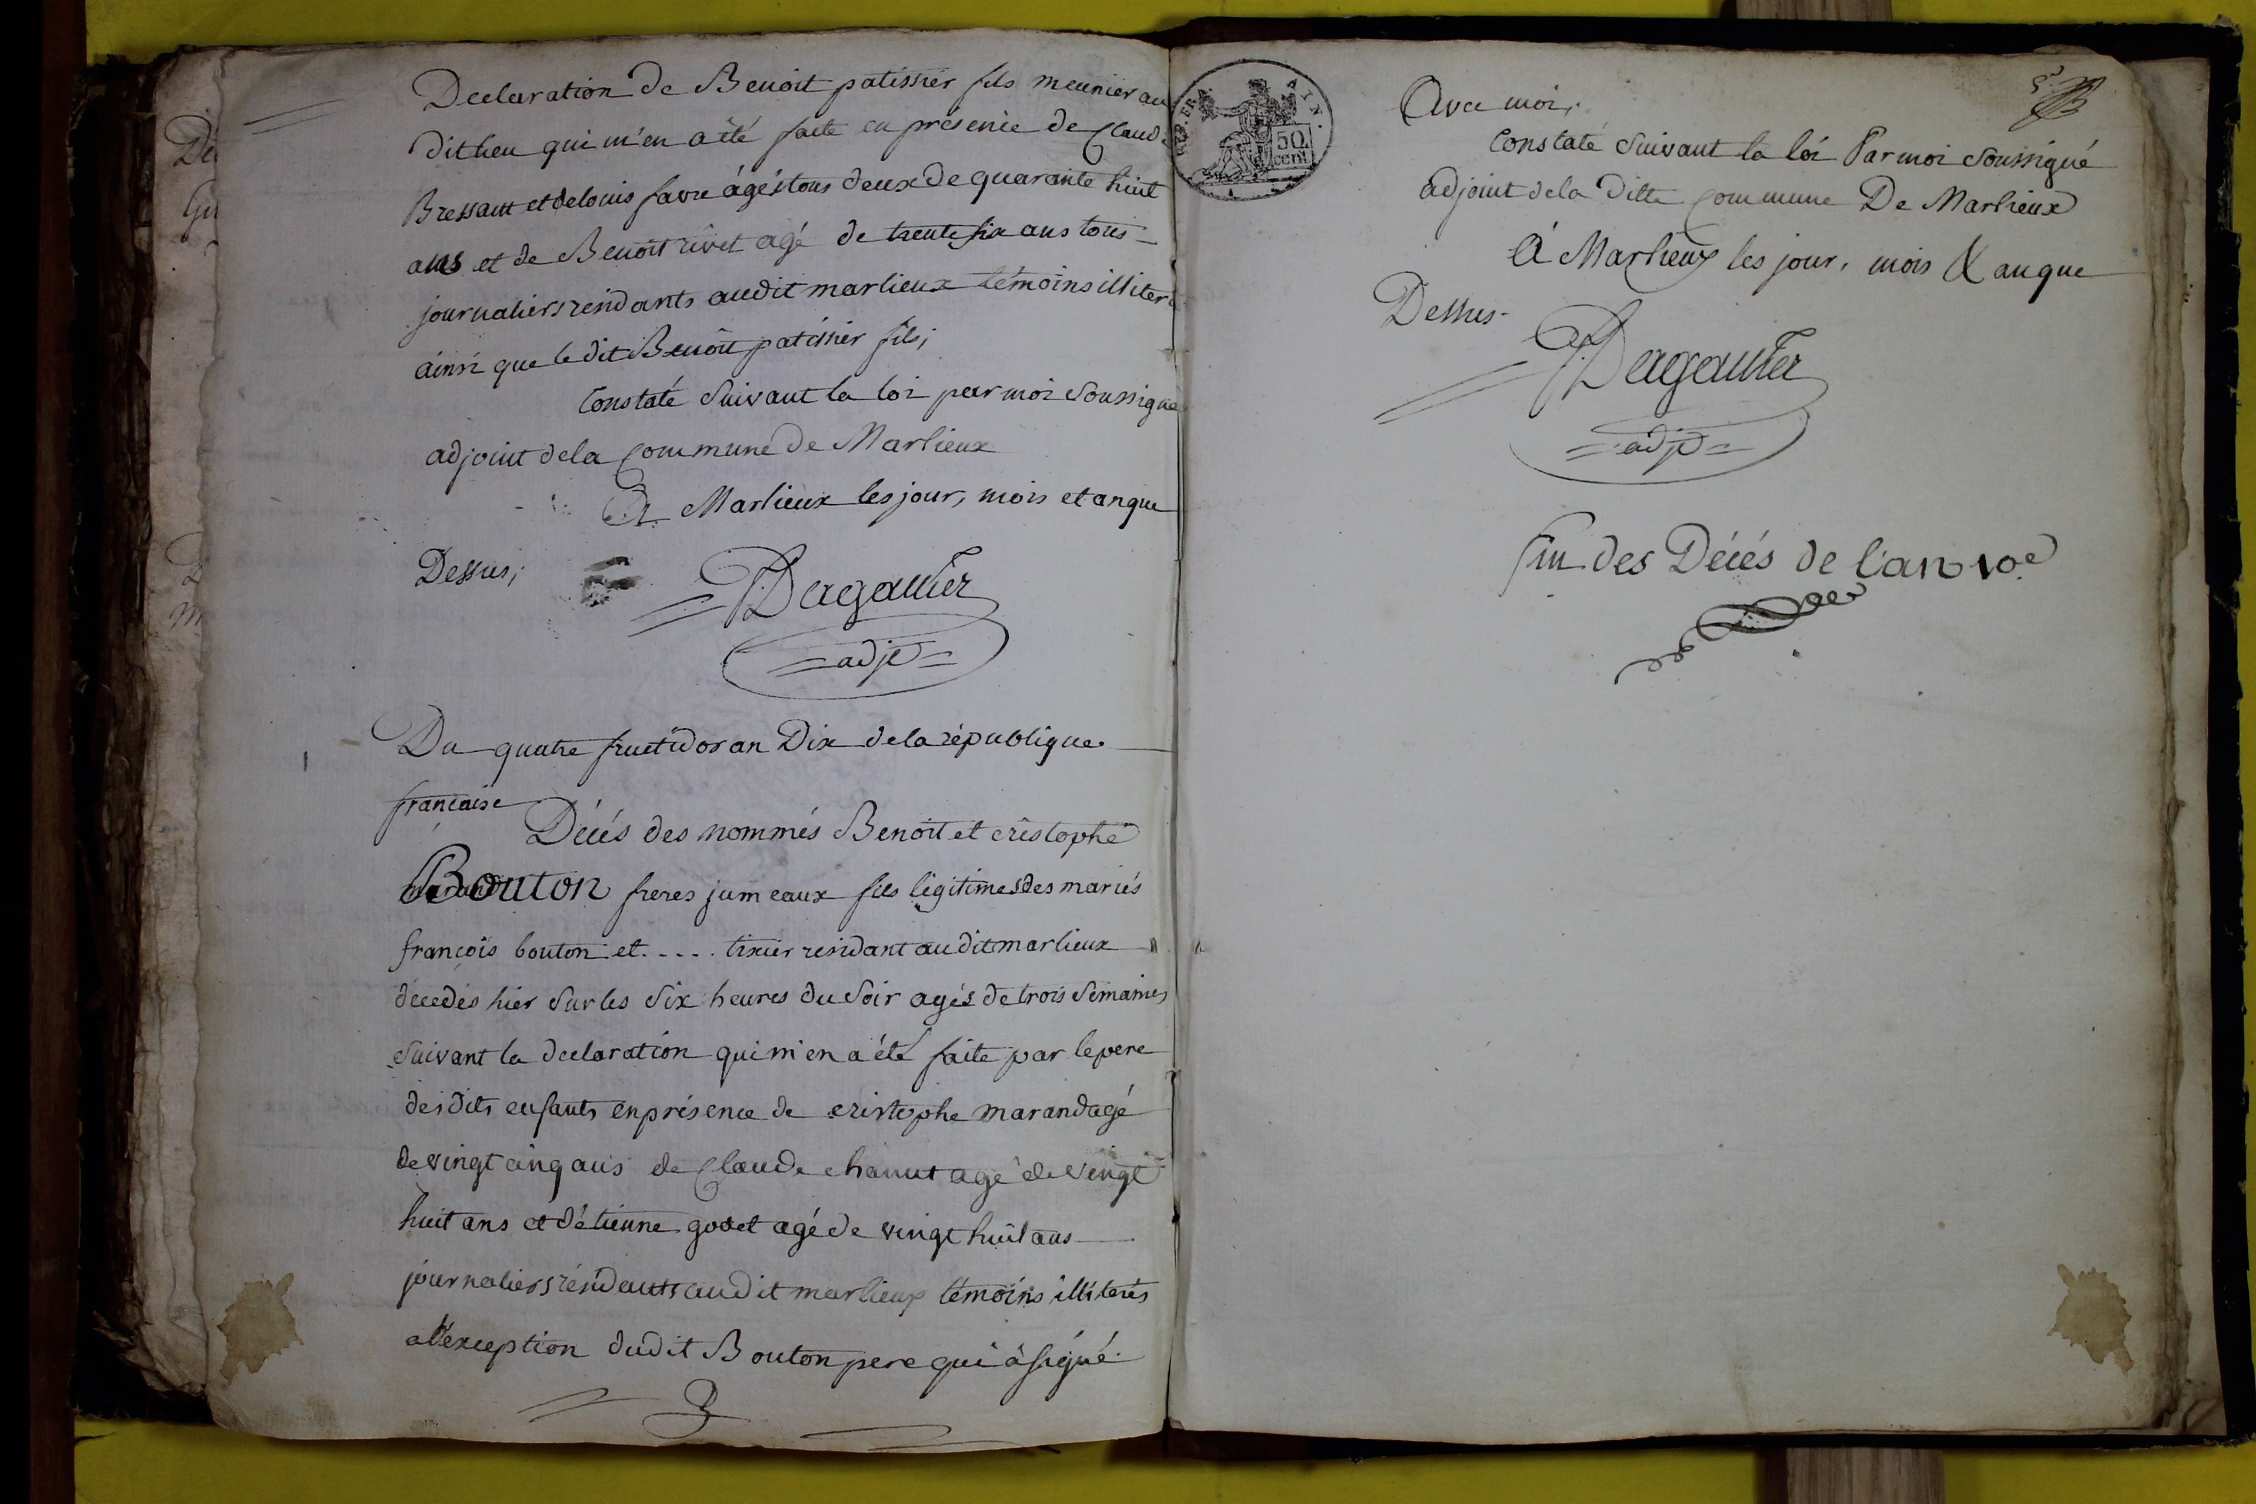 Declaration de Benoit patissier fils meunier au
dit lieu qui m'en a été faite en présence de Claude
Bressant et de louis favre ágés tous deux de quarante huit
ans et de Benoit rivet agé de trente six ans tous
journaliers résidants audit marlieux témoins illiterés
ainsi que le dit Benoit patissier fils;
Constaté Suivant la loi par moi Soussigné
adjoint de la Commune de Marlieux
A Marlieux les jour, mois et an que
Dessus;
Dagallier
adjt
Du quatre fructidor an Dix de la république
française
Décés des nommés Benoit et cristophe
Bouton freres jumeaux fils légitimes des mariés
françois bouton et ..... tixier résidant audit marlieux
décedés hier Sur les Six heures du Soir agés de trois Semaines
Suivant la declaration qui m'en a été faite par le pere
des dits enfants en présence de cristophe marand agé
de vingt cinq ans de Claude chanut agé de vingt
huit ans et d'étienne godet agé de vingt huit ans
journaliers résidants audit marlieux témoins illiterés
a l'exception dudit Bouton pere qui à signé
REP. FRA.
AIN.
50
cent
Avec moi;
Constaté Suivant la loi Par moi Soussigné
adjoint de la ditte Commune De Marlieux
A Marlieux les jour, mois & an que
Dessus-
Dagallier
adjt
fin des Décés de l'an 10e